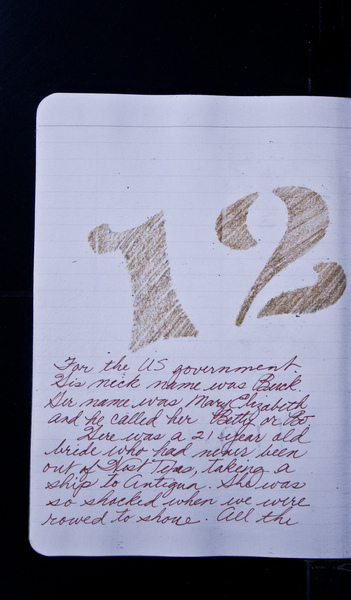 12
For the US government.
His nick name was Buck
Her name was Mary Elizabeth
and he called her Betty or Bo
Here was a 21 year old
bride who had never been
out of West Texas, taking a
ship to Antigua. She was
so shocked when we were
rowed to shore. All the